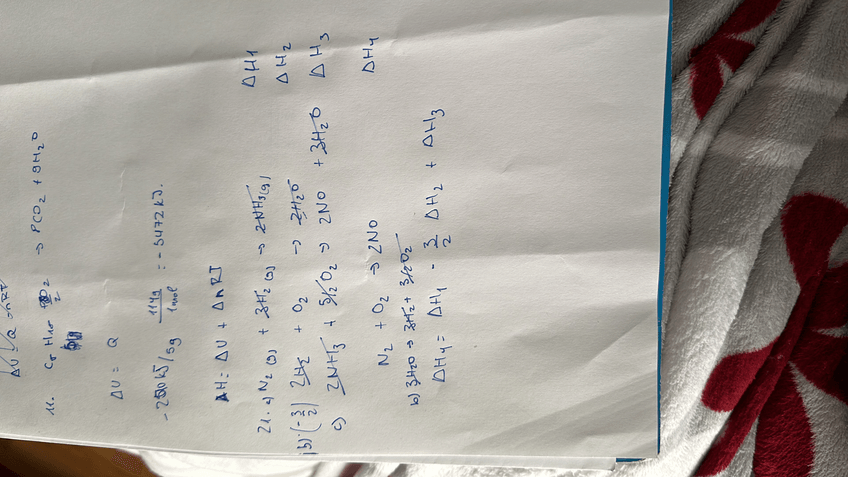 ΔU = Q - nRT
11. C8 H18 + O2 → PCO2 + 9H2O
2
ΔU = Q
-250 kJ/5g 114g/1mol = -5472 kJ.
ΔH = ΔU + ΔnRT
21. a) N2 (g) + 3H2 (g) → 2NH3 (g) ΔH1
b) (-3/2) 2H2 + O2 → 2H2O ΔH2
c) 2NH3 + 5/2 O2 → 2NO + 3H2O ΔH3
N2 + O2 → 2NO ΔH4
b) 3H2O → 3H2 + 3/2 O2
ΔH4 = ΔH1 - 3/2 ΔH2 + ΔH3